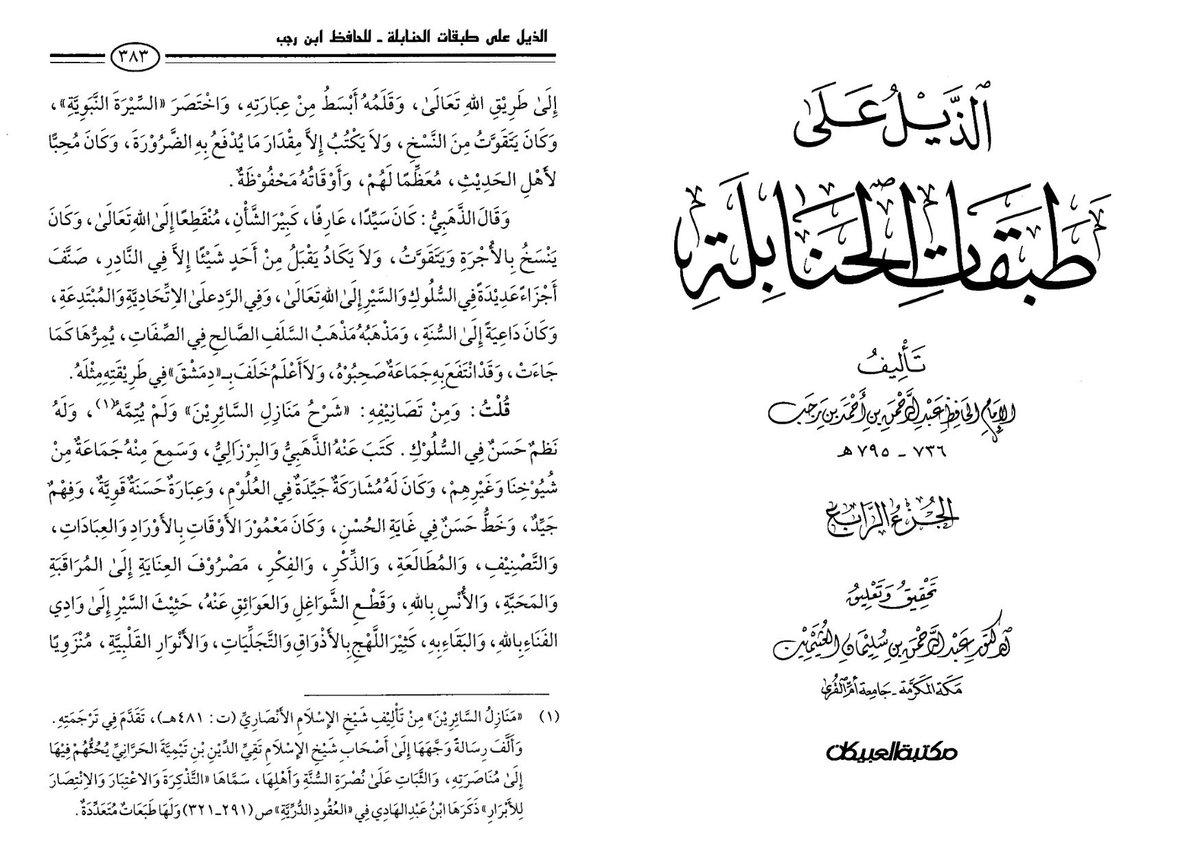 الذَّيْلُ عَلَى
طَبَقَاتِ الحَنَابِلَةِ
تَأْلِيفُ
الإِمَامِ الحَافِظِ عَبْدِ الرَّحْمَنِ بْنِ أَحْمَدَ بْنِ رَجَبٍ
٧٣٦ - ٧٩٥ هـ
الجُزْءُ الرَّابِعُ
تَحْقِيقُ وَتَعْلِيقُ
الدكتور عَبْدِ الرَّحْمَنِ بْنِ سُلَيْمَانَ العُثَيْمِين
مَكَّةُ المُكَرَّمَة - جَامِعَةُ أُمِّ القُرَى
مكتبة العبيكان
الذيل على طبقات الحنابلة - للحافظ ابن رجب
٣٨٣
إِلَىٰ طَرِيْقِ اللهِ تَعَالَىٰ، وَقَلَمُهُ أَبْسَطُ مِنْ عِبَارَتِهِ، وَاخْتَصَرَ «السِّيْرَةَ النَّبَوِيَّةِ»،
وَكَانَ يَتَقَوَّتُ مِنَ النَّسْخِ، وَلَا يَكْتُبُ إِلَّا مِقْدَارَ مَا يُدْفَعُ بِهِ الضَّرُوْرَةَ، وَكَانَ مُحِبًّا
لأَهْلِ الحَدِيْثِ، مُعَظِّمًا لَهُمْ، وَأَوْقَاتُهُ مَحْفُوْظَةٌ.
وَقَالَ الذَّهَبِيُّ: كَانَ سَيِّدًا، عَارِفًا، كَبِيْرَ الشَّأْنِ، مُنْقَطِعًا إِلَىٰ اللهِ تَعَالَىٰ، وَكَانَ
يَنْسَخُ بِالأُجْرَةِ وَيَتَقَوَّتُ، وَلَا يَكَادُ يَقْبَلُ مِنْ أَحَدٍ شَيْئًا إِلَّا فِي النَّادِرِ، صَنَّفَ
أَجْزَاءً عَدِيْدَةً فِي السُّلُوكِ وَالسَّيْرِ إِلَىٰ اللهِ تَعَالَىٰ، وَفِي الرَّدِ عَلَىٰ الاتِّحَادِيَّةِ وَالمُبْتَدِعَةِ،
وَكَانَ دَاعِيَةً إِلَىٰ السُّنَةِ، وَمَذْهَبُهُ مَذْهَبُ السَّلَفِ الصَّالِحِ فِي الصِّفَاتِ، يُمِرُّهَا كَمَا
جَاءَتْ، وَقَدْ انْتَفَعَ بِهِ جَمَاعَةٌ صَحِبُوْهُ، وَلَا أَعْلَمُ خَلَفَ بِـ«دِمَشْقَ» فِي طَرِيْقَتِهِ مِثْلَهُ.
قُلْتُ: وَمِنْ تَصَانِيْفِهِ: «شَرْحُ مَنَازِلِ السَّائِرِيْنَ» وَلَمْ يُتِمَّهُ(١)، وَلَهُ
نَظْمٌ حَسَنٌ فِي السُّلُوْكِ. كَتَبَ عَنْهُ الذَّهَبِيُّ وَالبِرْزَالِيُّ، وَسَمِعَ مِنْهُ جَمَاعَةٌ مِنْ
شُيُوْخِنَا وَغَيْرِهِمْ، وَكَانَ لَهُ مُشَارَكَةٌ جَيِّدَةٌ فِي العُلُوْمِ، وَعِبَارَةٌ حَسَنَةٌ قَوِيَّةٌ، وَفَهْمٌ
جَيِّدٌ، وَخَطٌّ حَسَنٌ فِي غَايَةِ الحُسْنِ، وَكَانَ مَعْمُوْرَ الأَوْقَاتِ بِالأَوْرَادِ وَالعِبَادَاتِ،
وَالتَّصْنِيْفِ، وَالمُطَالَعَةِ، وَالذِّكْرِ، وَالفِكْرِ، مَصْرُوْفَ العِنَايَةِ إِلَىٰ المُرَاقَبَةِ
وَالمَحَبَّةِ، وَالأُنْسِ بِاللهِ، وَقَطْعِ الشَّوَاغِلِ وَالعَوَائِقِ عَنْهُ، حَثِيْثَ السَّيْرِ إِلَىٰ وَادِي
الفَنَاءِ بِاللهِ، وَالبَقَاءِ بِهِ، كَثِيْرَ اللَّهْجِ بِالأَذْوَاقِ وَالتَّجَلِّيَاتِ، وَالأَنْوَارِ القَلْبِيَّةِ، مُنْزَوِيًا
(١) «مَنَازِلُ السَّائِرِيْنَ» مِنْ تَأْلِيْفِ شَيْخِ الإِسْلَامِ الأَنْصَارِيِّ (ت: ٤٨١هـ)، تَقَدَّمَ فِي تَرْجَمَتِهِ.
وَأَلَّفَ رِسَالَةً وَجَّهَهَا إِلَىٰ أَصْحَابِ شَيْخِ الإِسْلَامِ تَقِيِّ الدِّيْنِ بْنِ تَيْمِيَّةَ الحَرَّانِيِّ يُحُثُّهُمْ فِيْهَا
إِلَىٰ مُنَاصَرَتِهِ، وَالثَّبَاتِ عَلَىٰ نُصْرَةِ السُّنَّةِ وَأَهْلِهَا، سَمَّاهَا «التَّذْكِرَةَ وَالاعْتِبَارَ وَالانْتِصَارَ
لِلأَبْرَارِ» ذَكَرَهَا ابْنُ عَبْدِ الهَادِي فِي «العُقُودِ الدُّرِّيَّةِ» ص (٢٩١-٣٢١) وَلَهَا طَبَعَاتٌ مُتَعَدِّدَةٌ.